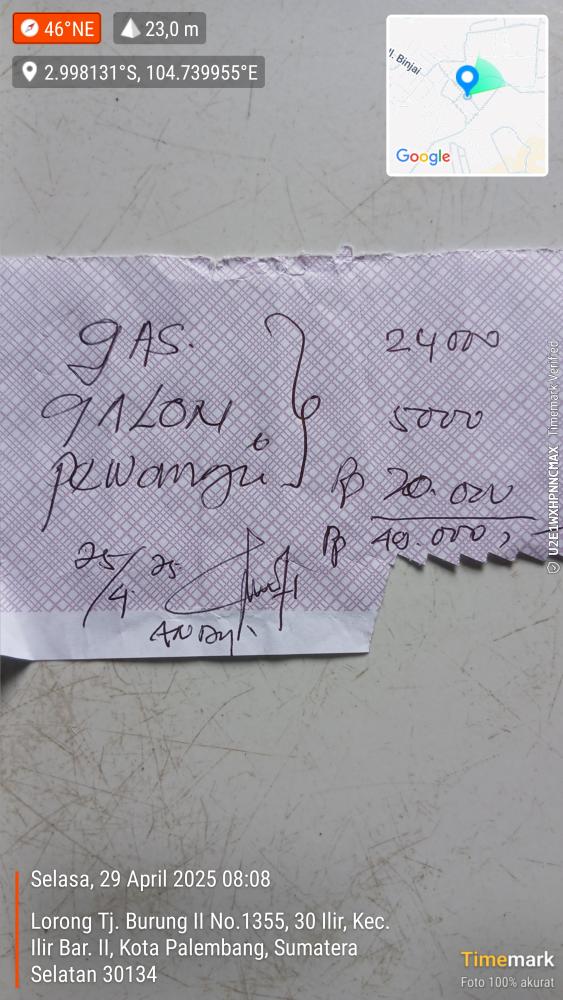 46°NE
23,0 m
2.998131°S, 104.739955°E
Jl. Binjai
Google
GAS. 24000
GALON 5000
pewangi Rp 20.000
Rp 49.000,-
25/4 25
ANDY
U2E1WXHPNNCMAX Timemark Verified
Selasa, 29 April 2025 08:08
Lorong Tj. Burung II No.1355, 30 Ilir, Kec.
Ilir Bar. II, Kota Palembang, Sumatera
Selatan 30134
Timemark
Foto 100% akurat